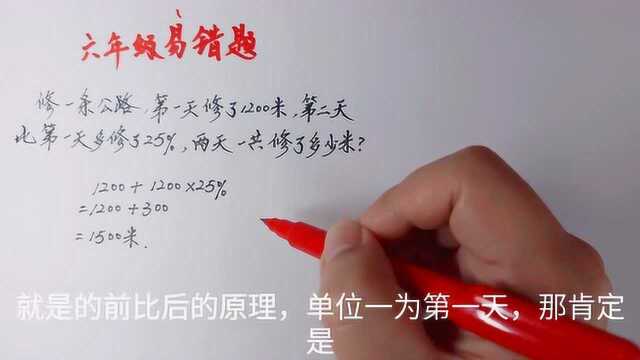 六年级易错题
修一条公路，第一天修了1200米，第二天
比第一天多修了25%，两天一共修了多少米？
1200+1200×25%
=1200+300
=1500米.
就是的前比后的原理，单位一为第一天，那肯定
是